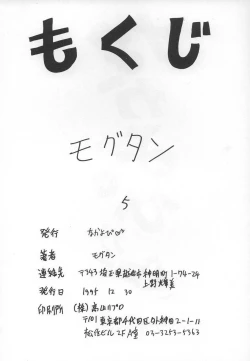 もくじ
モグタン
5
発行
著者 モグタン
連絡先 〒343 埼玉県越谷市神明町1-74-24
上野
発行日 1995 12 30
印刷所 (株)
〒101 東京都千代田区外神田2-1-11
松住ビル2F A室 03-3253-5363